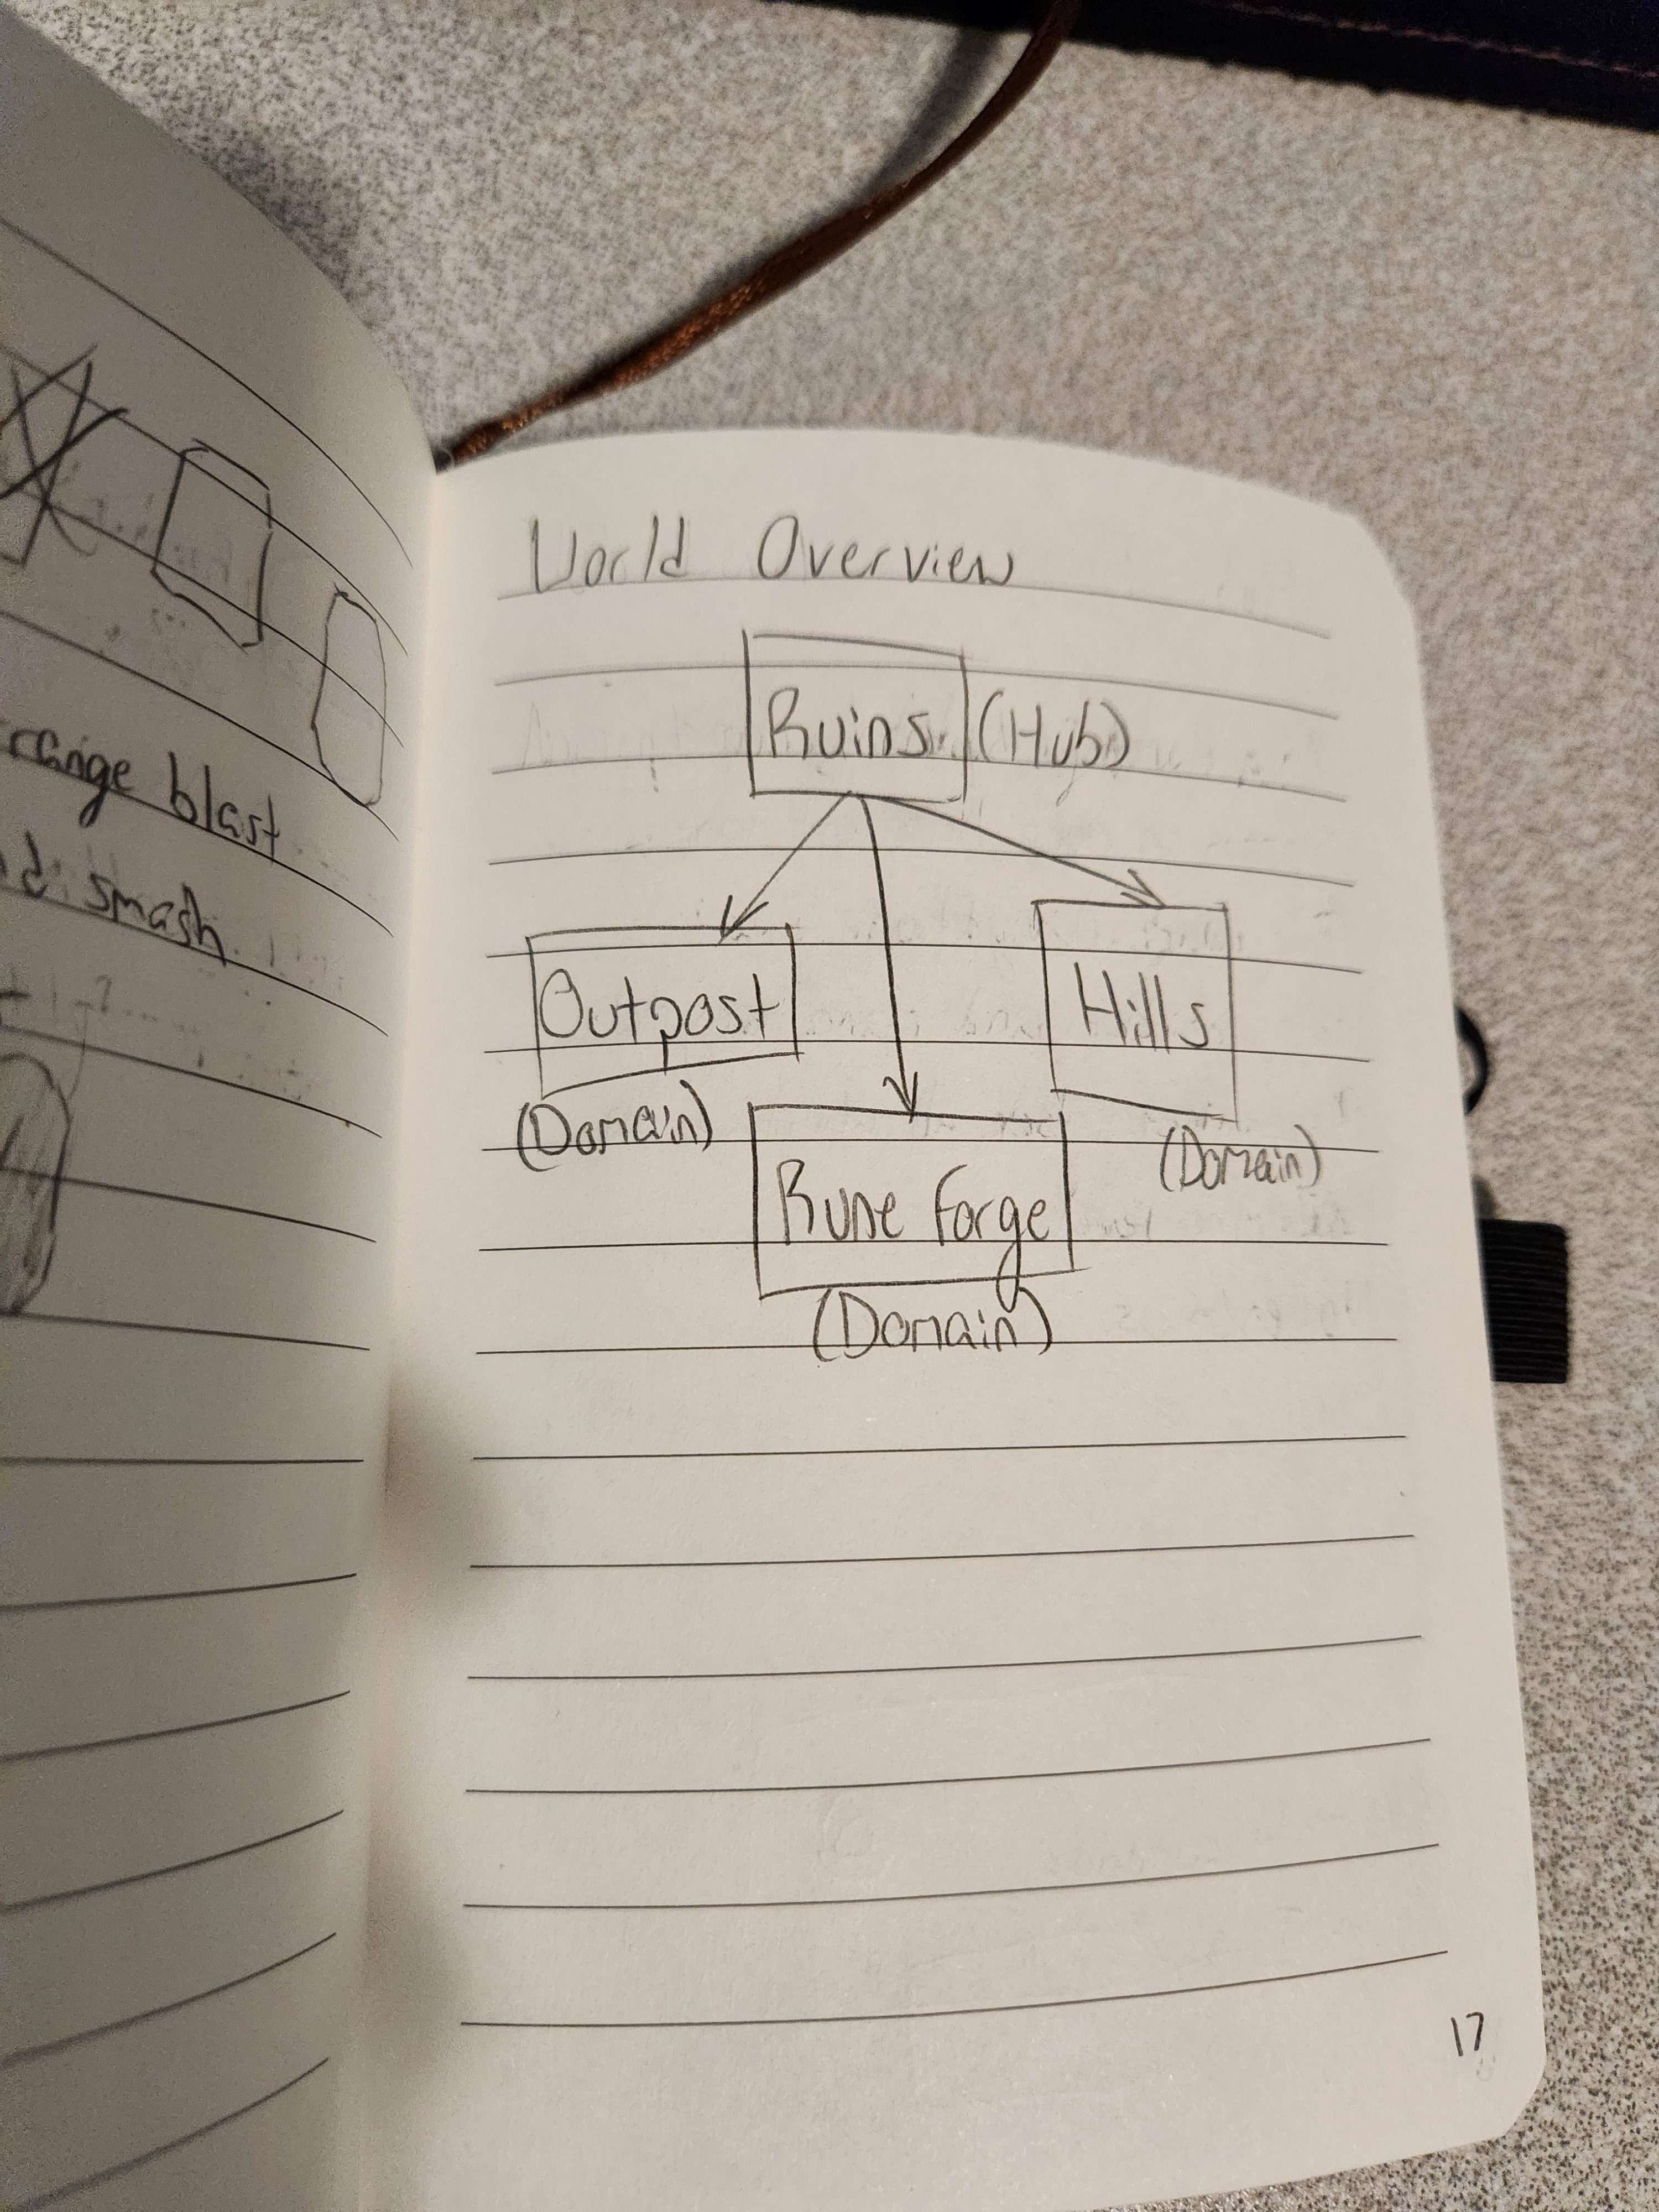 range blast
smash
World Overview
Ruins (Hub)
Outpost
Hills
(Domain)
(Domain)
Rune Forge
(Domain)
17